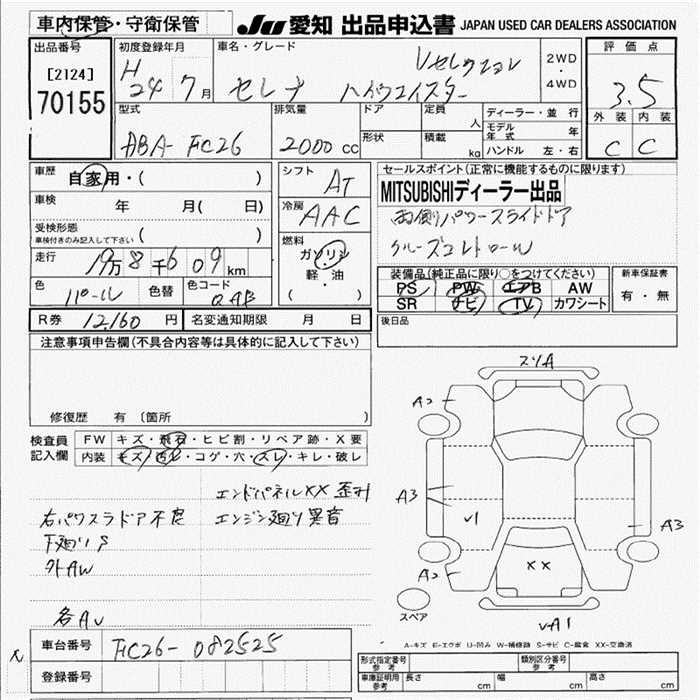 車内保管・守衛保管
JU 愛知 出品申込書 JAPAN USED CAR DEALERS ASSOCIATION
出品番号
[2124]
70155
初度登録年月
H 24 7月
車名・グレード
セレナ ハイウェイスター
Vセレクション
2WD
・
4WD
評価点
3.5
外装 内装
C C
型式
ABA- FC26
排気量
2000 cc
ドア
形状
定員
人
積載
kg
ディーラー・並行
モデル年式 年
ハンドル 左・右
車歴
自家用・( )
車検
年 月( 日)
受検形態
車検付きのみ記入して下さい ( )
走行
19万8千609km
色
パール
色替
色コード
QAB
シフト
AT
冷房
AAC
燃料
ガソリン
軽・油
( ・ )
セールスポイント(正常に機能するものに限ります)
MITSUBISHIディーラー出品
両側パワースライドドア
クルーズコントロール
装備品(純正品に限り○をつけてください)
PS PW エアB AW
SR ナビ TV カワシート
新車保証書
有・無
後日品
R券 12160 円
名変通知期限 月 日
注意事項申告欄(不具合内容等は具体的に記入して下さい)
修復歴 有〔箇所 〕
検査員記入欄
FW キズ・飛石・ヒビ割・リペア跡・X要
内装 キズ・汚レ・コゲ・穴・スレ・キレ・破レ
エンドパネルXX 歪み
右パワスラドア不良 エンジン廻り異音
下廻りS
外AW
各AU
スリA
A2
A3
A3
A2
√1
XX
スペア
√A1
A-キズ E-エクボ U-凹み W-補修跡 S-サビ C-腐食 XX-交換済
車台番号
FC26- 082525
登録番号
型式指定番号 参考
類別区分番号 参考
車庫証明用 参考
長さ cm
幅 cm
高さ cm